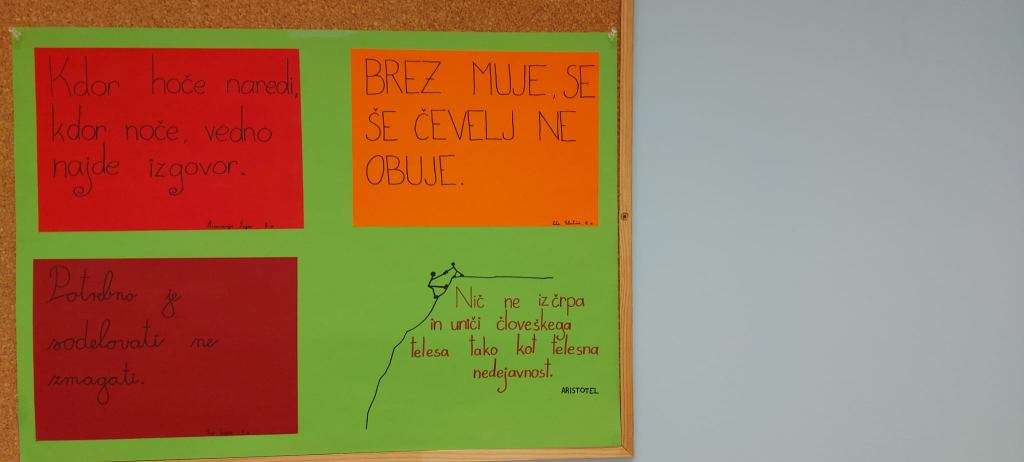 Kdor hoče naredi,
kdor noče, vedno
najde izgovor.
BREZ MUJE, SE
ŠE ČEVELJ NE
OBUJE.
Potrebno je
sodelovati ne
zmagati.
Nič ne izčrpa
in uniči človeškega
telesa tako kot telesna
nedejavnost.
ARISTOTEL